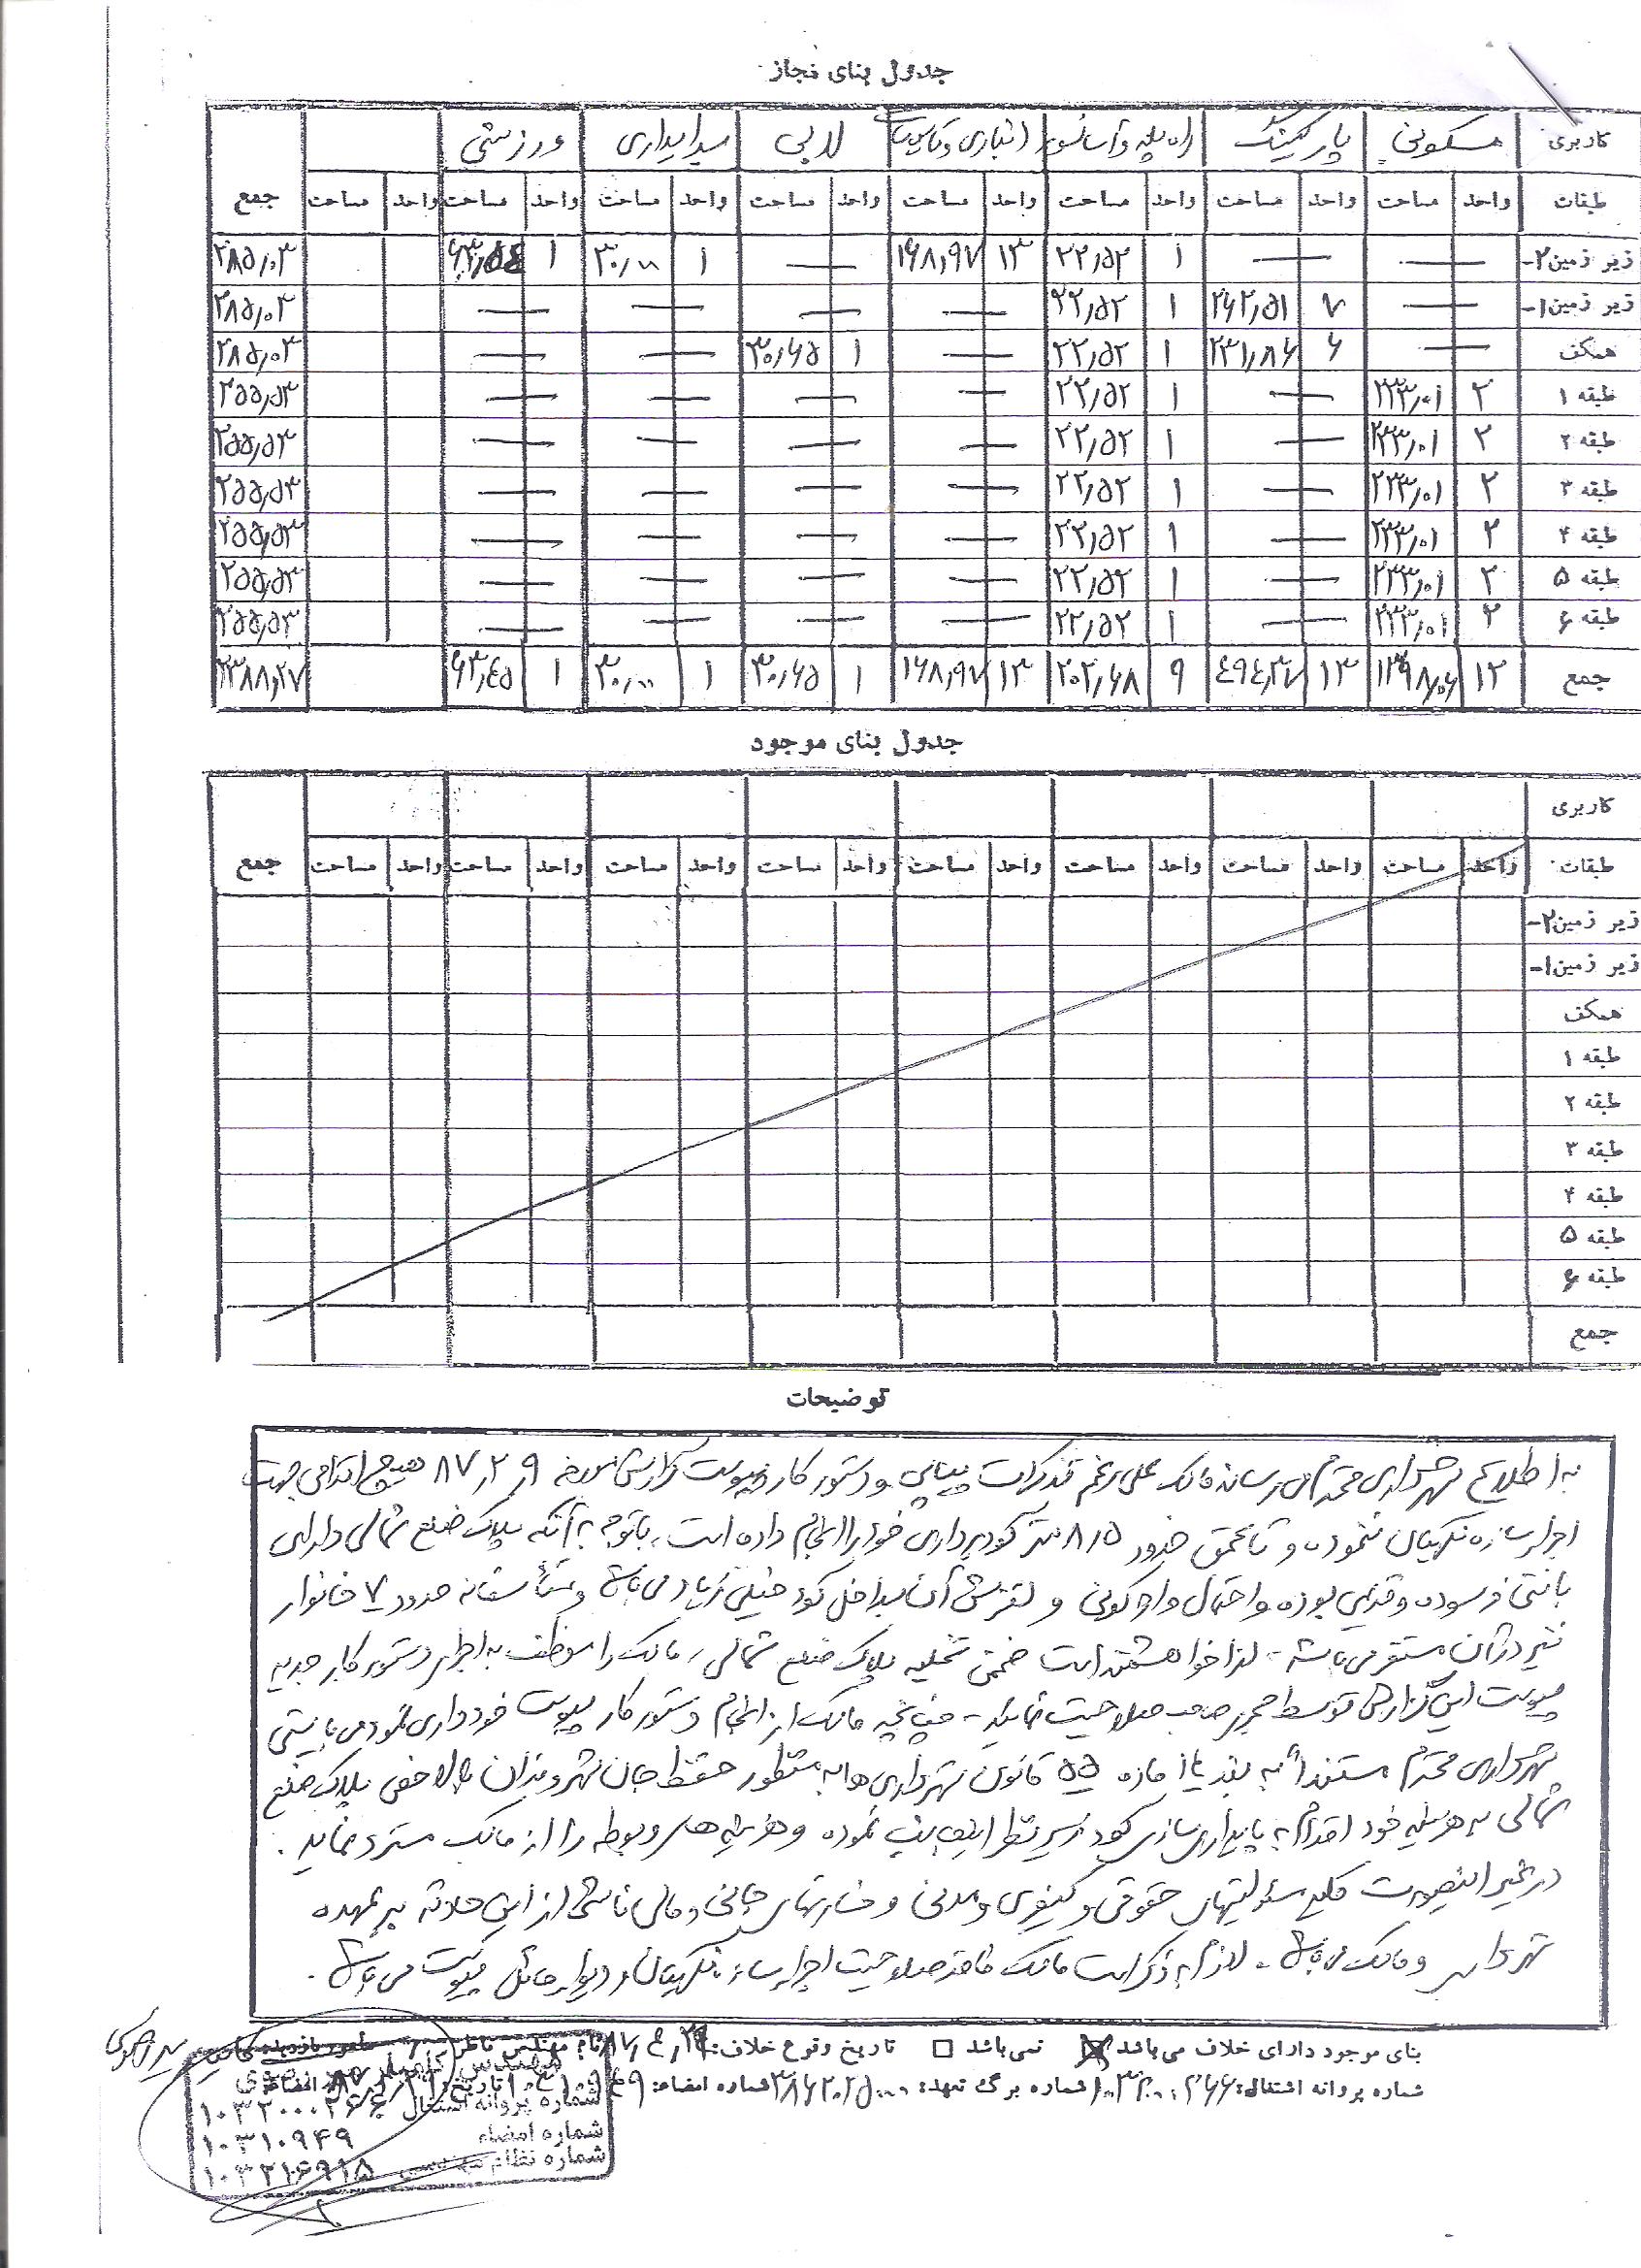 جدول بنای مجاز
کاربری مسکونی پارکینگ راه پله و آسانسور انباری و تاسیسات لابی سرایداری ورزشی
طبقات واحد مساحت واحد مساحت واحد مساحت واحد مساحت واحد مساحت واحد مساحت واحد مساحت واحد مساحت جمع
زیر زمین۲- — — ۱ ۲۲٫۵۲ ۱۳ ۱۶۸٫۹۷ — ۱ ۳۰٫۰۰ ۱ ۲۸۵٫۰۳
زیر زمین۱- — ۷ ۲۶۲٫۵۱ ۱ ۲۲٫۵۲ — — — — ۲۸۵٫۰۳
همکف — ۶ ۲۳۱٫۸۶ ۱ ۲۲٫۵۲ — ۱ ۳۰٫۶۵ — — ۲۸۵٫۰۳
طبقه ۱ ۲ ۲۳۳٫۰۱ — ۱ ۲۲٫۵۲ — — — — ۲۵۵٫۵۳
طبقه ۲ ۲ ۲۳۳٫۰۱ — ۱ ۲۲٫۵۲ — — — — ۲۵۵٫۵۳
طبقه ۳ ۲ ۲۳۳٫۰۱ — ۱ ۲۲٫۵۲ — — — — ۲۵۵٫۵۳
طبقه ۴ ۲ ۲۳۳٫۰۱ — ۱ ۲۲٫۵۲ — — — — ۲۵۵٫۵۳
طبقه ۵ ۲ ۲۳۳٫۰۱ — ۱ ۲۲٫۵۲ — — — — ۲۵۵٫۵۳
طبقه ۶ ۲ ۲۳۳٫۰۱ — ۱ ۲۲٫۵۲ — — — — ۲۵۵٫۵۳
جمع ۱۲ ۱۳۹۸٫۰۶ ۱۳ ۴۹۴٫۳۷ ۹ ۲۰۲٫۶۸ ۱۳ ۱۶۸٫۹۷ ۱ ۳۰٫۶۵ ۱ ۳۰٫۰۰ ۱ ۶۳٫۴۵ ۲۳۸۸٫۲۷
جدول بنای موجود
کاربری
طبقات: واحد مساحت واحد مساحت واحد مساحت واحد مساحت واحد مساحت واحد مساحت واحد مساحت واحد مساحت جمع
زیر زمین۲-
زیر زمین۱-
همکف
طبقه ۱
طبقه ۲
طبقه ۳
طبقه ۴
طبقه ۵
طبقه ۶
جمع
توضیحات
به اطلاع شهرداری محترم می رساند مالک علی رغم تذکرات پیاپی و دستور کار پیوست گزارش مورخ ۸۷٫۲٫۹ هیچ اقدامی جهت
اجرای سازه نگهبان ننموده و تا عمق حدود ۸٫۵ متر گودبرداری خود را انجام داده است، با توجه به آنکه پلاک ضلع شمالی دارای
بافتی فرسوده و قدیمی بوده و احتمال واژگونی و لغزش آن به داخل گود خیلی زیاد می باشد و متأسفانه حدود ۷ خانوار
نیز در آن مستقر می باشد - لذا خواهشمند است ضمن تخلیه پلاک ضلع شمالی، مالک را موظف به اجرای دستور کار جدید
پیوست این گزارش توسط مجری صاحب صلاحیت نمایید - چنانچه مالک از انجام دستور کار پیوست خودداری نمود می بایستی
شهرداری محترم مستنداً به بند ۱۴ ماده ۵۵ قانون شهرداری ها به منظور حفظ جان شهروندان بالاخص پلاک ضلع
شمالی به هزینه خود اقدام به پایدارسازی گود زیر نظر اینجانب نموده و هزینه های مربوطه را از مالک مسترد نماید.
در غیر اینصورت کلیه مسئولیتهای حقوقی و کیفری و مدنی و خسارتهای جانی و مالی ناشی از این حادثه بر عهده
شهرداری و مالک می باشد - لازم به ذکر است مالک فاقد صلاحیت اجرای سازه نگهبان و دیوار حائل پیوست می باشد.
بنای موجود دارای خلاف می باشد ☒ نمی باشد ☐ تاریخ وقوع خلاف: ۸۷٫۴٫۲۹ نام مهندس ناظر
شماره پروانه اشتغال: شماره برگ تعهد: شماره امضاء: تاریخ امضاء
مهندس
شماره پروانه اشتغال ۱۰۳۲۰۰۰۲۶۶
شماره امضاء ۱۰۳۱۰۹۴۹
شماره نظام مهندسی ۱۰۳۲۱۶۹۱۵